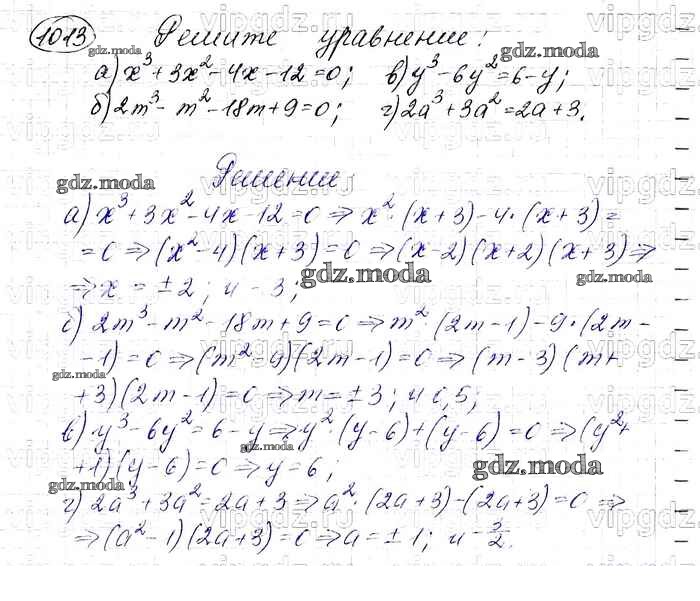 1013 Решите уравнение:
а) x³ + 3x² - 4x - 12 = 0; в) y³ - 6y² = 6 - y;
б) 2m³ - m² - 18m + 9 = 0; г) 2a³ + 3a² = 2a + 3.
Решение
а) x³ + 3x² - 4x - 12 = 0 ⇒ x² · (x + 3) - 4 · (x + 3) =
= 0 ⇒ (x² - 4)(x + 3) = 0 ⇒ (x - 2)(x + 2)(x + 3) ⇒
⇒ x = ±2; и - 3;
б) 2m³ - m² - 18m + 9 = 0 ⇒ m² · (2m - 1) - 9 · (2m -
- 1) = 0 ⇒ (m² - 9)(2m - 1) = 0 ⇒ (m - 3)(m +
+ 3)(2m - 1) = 0 ⇒ m = ±3; и 0,5;
в) y³ - 6y² = 6 - y ⇒ y² · (y - 6) + (y - 6) = 0 ⇒ (y² +
+ 1)(y - 6) = 0 ⇒ y = 6,
г) 2a³ + 3a² = 2a + 3 ⇒ a² · (2a + 3) - (2a + 3) = 0 ⇒
⇒ (a² - 1)(2a + 3) = 0 ⇒ a = ±1; и -3/2.
gdz.moda
gdz.moda
gdz.moda
gdz.moda
gdz.moda
gdz.moda
gdz.moda
gdz.moda
gdz.moda
gdz.moda
vipgdz